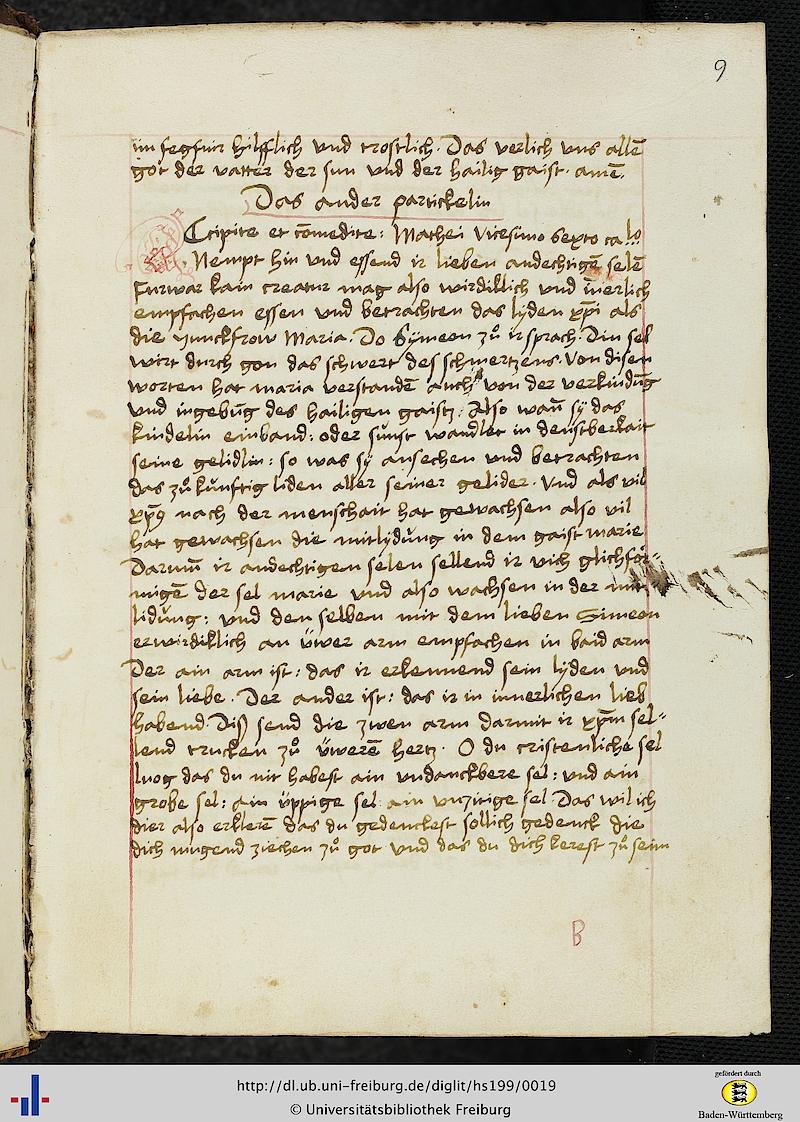 9
im fegfuir hilfflich vnd trostlich. Das verlich vns allē
got der vatter der sun vnd der hailig gaist. amē.
Das ander partickelin
Ccipite et cōmedite: Mathei Vicesimo sexto
Nempt hin vnd essend ir lieben andechtigē selē
Furwar kain creatur mag also wirdiklich vnd īnerlich
empfachen essen vnd betrachten das lyden xp̄i als
die Junckfrow Maria. Do Symeon zů ir sprach. Din sel
wirt durch gon das schwert des schmertzens. Von disen
worten hat maria verstandē auch von der verkündūg
vnd ingebūg des hailigen gaistz. Also wañ sy das
kindelin einband: oder sunst wandlet in denstberkait
seine gelidlin: so was sy ansechen vnd betrachten
das zůkünftig liden aller seiner gelider. Vnd als vil
xp̄s nach der menschait hat gewachsen also vil
hat gewachsen die mitlydūng in dem gaist marie
Darum ir andechtigen selen sellend ir üch glichför=
migē der sel marie vnd also wachsen in der mit
lidūng: vnd den selben mit dem lieben Simeon
erwirdiklich an üwer arm empfachen in baid arm
Der ain arm ist: das ir erkennend sein lyden vnd
sein liebe. Der ander ist: das ir in innerlichen lieb
habend. Diß send die zwen arm darmit ir xp̄m sel=
lend trucken zů üwerē hertz. O du cristenliche sel
luog das du nit habest ain vndanckbere sel: vnd ain
grobe sel: ain üppige sel ain vnzitige sel. Das wil ich
dier also erklerē das du gedenckest sollich gedenck die
dich mugend ziechen zů got vnd das du dich kerest zů seim
B
http://dl.ub.uni-freiburg.de/diglit/hs199/0019
© Universitätsbibliothek Freiburg
gefördert durch
Baden-Württemberg